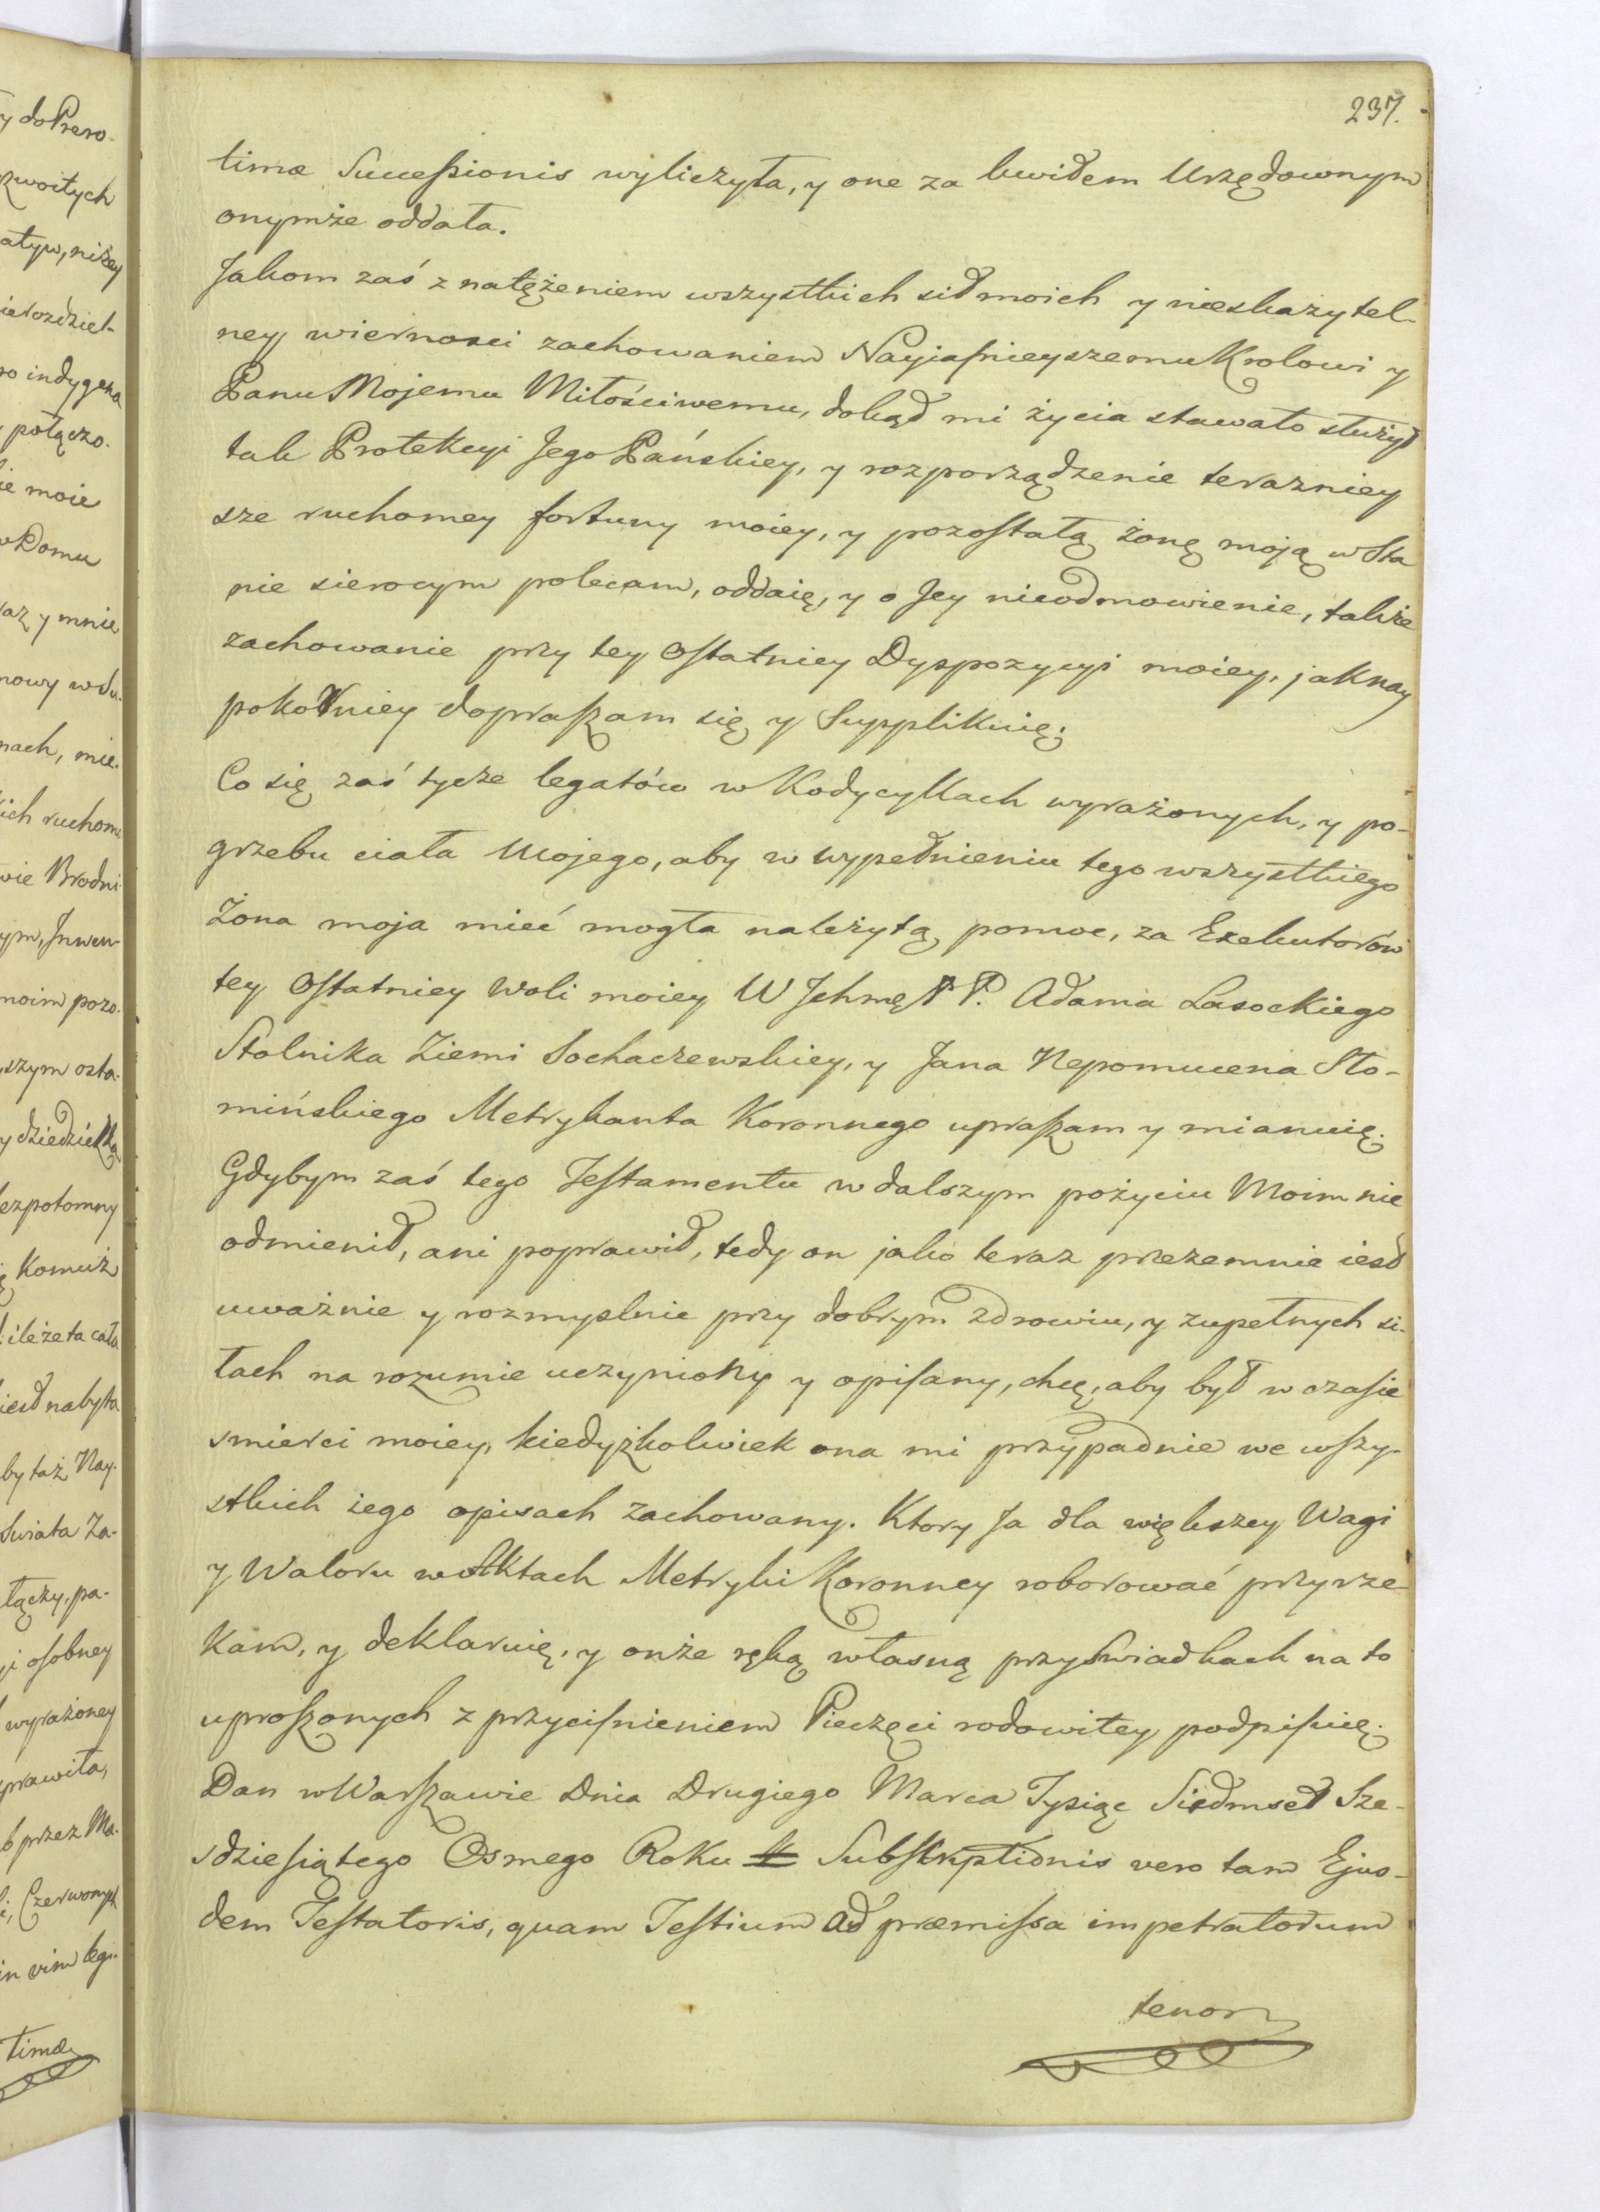 237.
timæ Successionis wyliczyła, y one za kwitem Urzędownym
onymże oddała.
Jakom zaś z natężeniem wszystkich sił moich y nieskazytel-
ney wiernosci zachowaniem Nayjasnieyszemu Krolowi y
Panu Mojemu Miłościwemu, dokąd mi życia stawało służył
tak Protekcyi Jego Pańskiey, y rozporządzenie terazniey
sze ruchomey fortuny moiey, y pozostałą żonę moją w Sta
nie sierocym polecam, oddaię, y o Jey nieodmowienie, także
zachowanie przy tey Ostatniey Dyspozycyi moiey, jaknay
pokorniey dopraszam się y Supplikuię;
Co się zaś tycze legatów w Kodycyllach wyrażonych, y po-
grzebu ciała Mojego, aby w wypełnieniu tego wszystkiego
Żona moja mieć mogła należytą pomoc, za Exekutorów
tey Ostatniey Woli moiey W Jchmę P P. Adama Lasockiego
Stolnika Ziemi Sochaczewskiey, y Jana Nepomucena Sło-
mińskiego Metrykanta Koronnego upraszam y mianuię.
Gdybym zaś tego Testamentu w dalszym pożyciu Moim nie
odmienił, ani poprawił, tedy on jako teraz przezemnie iest
uważnie y rozmyslnie przy dobrym zdrowiu, y zupełnych si-
łach na rozumie uczyniony y opisany, chcę, aby był w czasie
smierci moiey, kiedyżkolwiek ona mi przypadnie we wszy-
stkich iego opisach zachowany. Ktory Ja dla większey Wagi
y Waloru w Aktach Metryki Koronney roborować przyrze-
kam, y deklaruię, y onże ręką własną przy Swiadkach na to
uproszonych z przycisnieniem Pieczęci rodowitey podpisuię.
Dan w Warszawie Dnia Drugiego Marca Tysiąc Siedmset Sze-
sdziesiątego Osmego Roku Subskryptionis vero tam Ejus-
dem Testatoris, quam Testium ad præmissa impetratorum
tenor